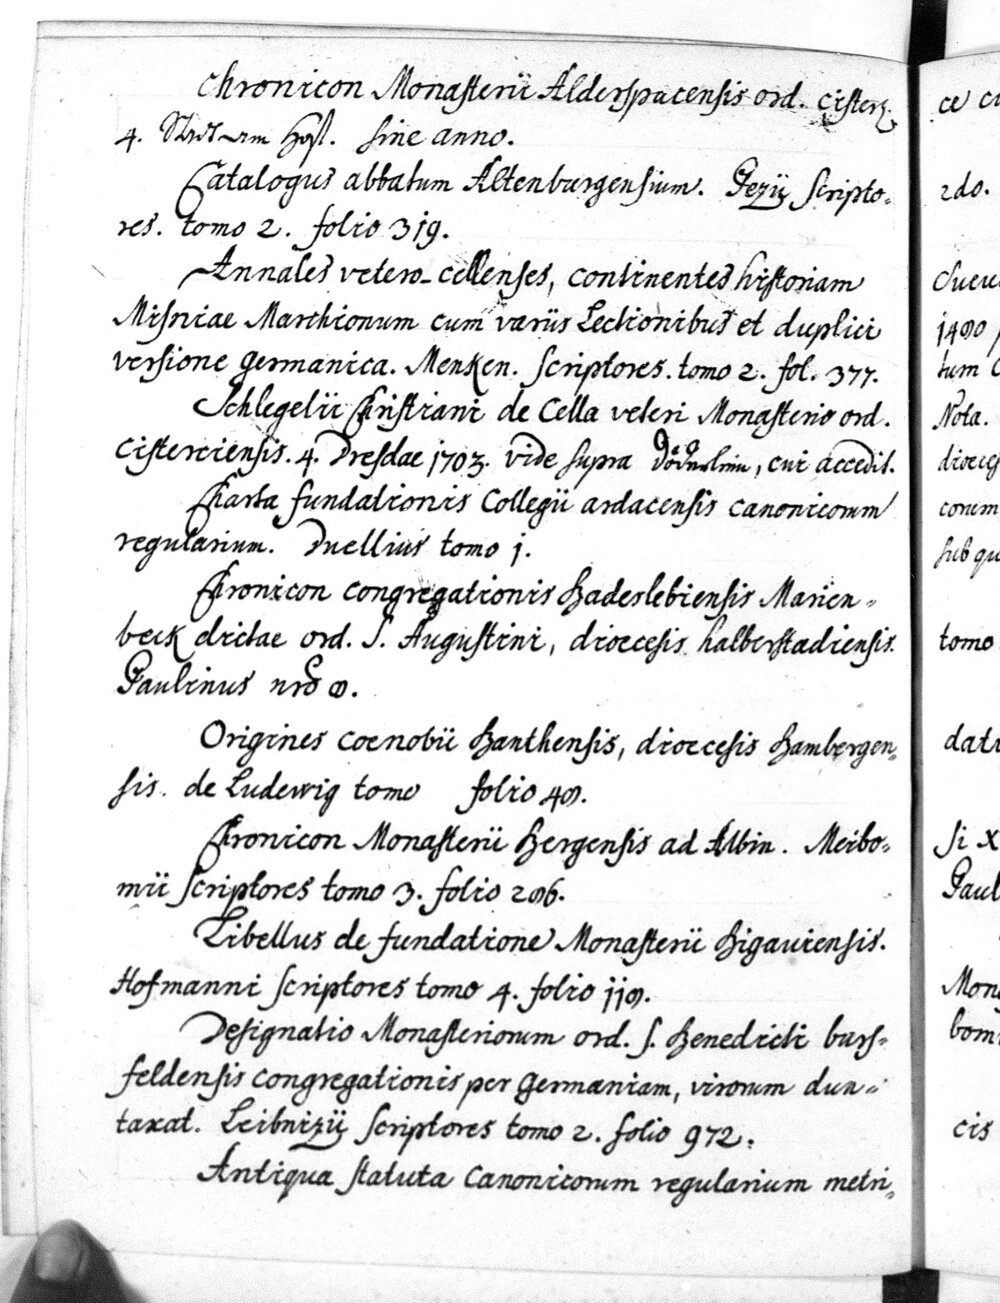 Chronicon Monasterii Alderspacensis ord. cisterz.
4. sine anno.
Catalogus abbatum Altenburgensium. Pezÿ Scripto-
res. tomo 2. folio 319.
Annales vetero-cellenses, continentes historiam
Misniae Marchionum cum variis Lectionibus et duplici
versione germanica. Menken. Scriptores. tomo 2. fol. 377.
Schlegelii Christiani de Cella veteri Monasterio ord.
Cisterciensis. 4. Dresdae 1703. vide supra, cui accedit.
Charta fundationis Collegii ardacensis canonicorum
regularium. Duellius tomo 1.
Chronicon congregationis Hadeslebiensis Marien-
beck dictae ord. S. Augustini, dioecesis halberstadiensis.
Paulinus nro
Origines coenobii Banthensis, dioecesis Bambergen-
sis. de Ludewig tomo folio 49.
Chronicon Monasterii Bergensis ad Albin. Meibo-
mii Scriptores tomo 3. folio 296.
Libellus de fundatione Monasterii Bigaviensis.
Hofmanni Scriptores tomo 4. folio 119.
Designatio Monasteriorum ord. S. Benedicti burs-
feldensis congregationis per Germaniam, virorum dun-
taxat. Leibnizÿ Scriptores tomo 2. folio 972.
Antiqua statuta Canonicorum regularium metri-
2do.
tomo
cis